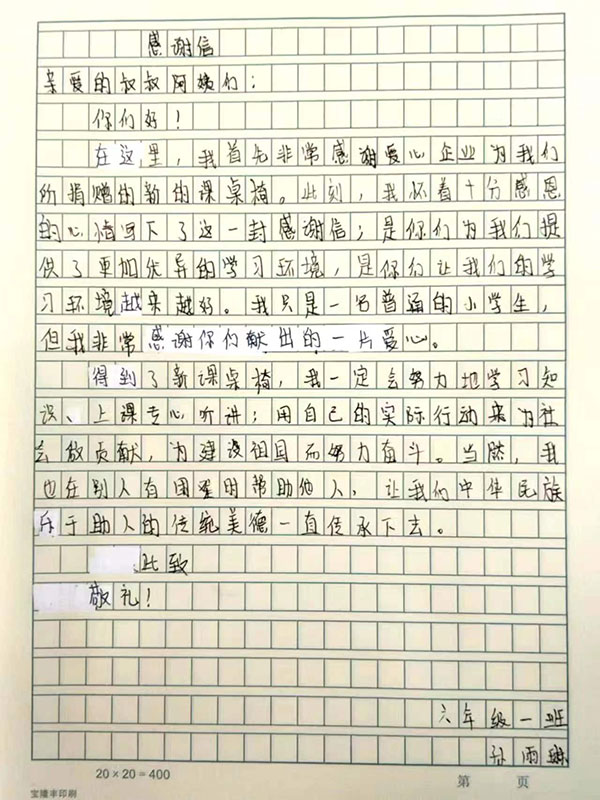 感谢信
亲爱的叔叔阿姨们：
你们好！
在这里，我首先非常感谢爱心企业为我们
所捐赠的新的课桌椅。此刻，我怀着十分感恩
的心情写下了这一封感谢信；是你们为我们提
供了更加优异的学习环境，是你们让我们的学
习环境越来越好。我只是一名普通的小学生，
但我非常感谢你们献出的一片爱心。
得到了新课桌椅，我一定会努力地学习知
识、上课专心听讲；用自己的实际行动来为社
会做贡献，为建设祖国而努力奋斗。当然，我
也在别人有困难时帮助他人，让我们中华民族
乐于助人的传统美德一直传承下去。
此致
敬礼！
六年级一班
孙雨琳
20×20=400
第 页
宝隆丰印刷